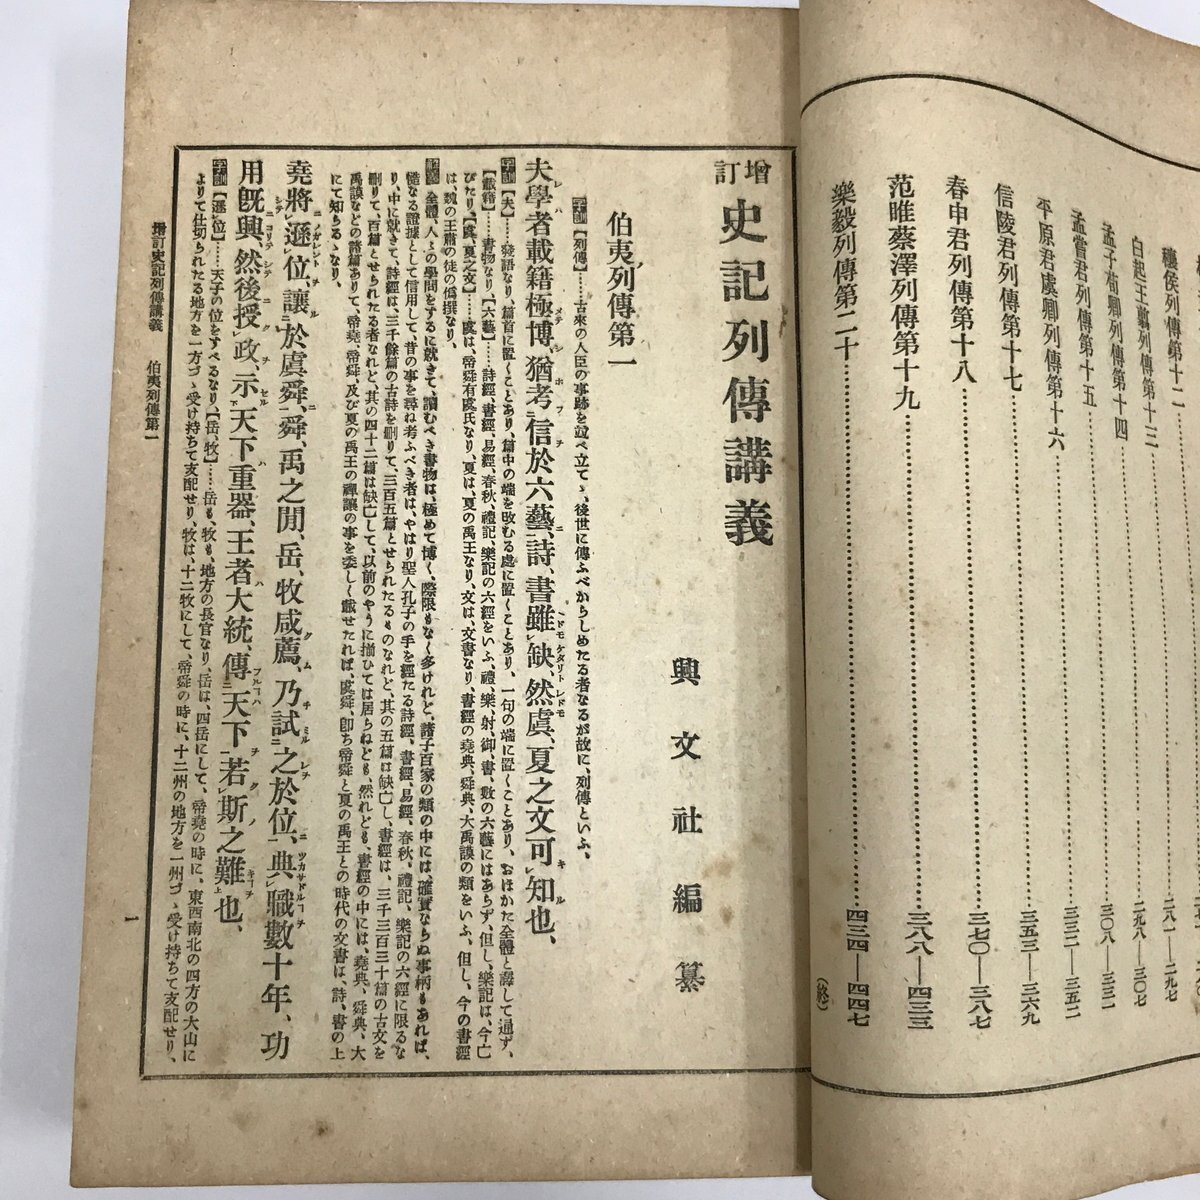 穰侯列傳第十二………二八一―二九七
白起王翦列傳第十三………二九八―三〇七
孟子荀卿列傳第十四………三〇八―三三一
孟嘗君列傳第十五………三三二―三五二
平原君虞卿列傳第十六
信陵君列傳第十七………三五三―三六九
春申君列傳第十八………三七〇―三八七
范雎蔡澤列傳第十九………三八八―四三三
樂毅列傳第二十………四三四―四四七
(終)
增訂 史記列傳講義
興文社編纂
伯夷列傳第一
字訓【列傳】……古來の人臣の事跡を竝べ立てゝ、後世に傳ふべからしめたる者なるが故に、列傳といふ、
夫學者載籍極博、猶考信於六藝、詩、書雖缺、然虞、夏之文可知也、
字訓【夫】……發語なり、篇首に置くことあり、篇中の端を攺むる處に置くことあり、一句の端に置くことあり、おほかた全體と譯して通ず、
【載籍】……書物なり、【六藝】……詩經、書經、易經、春秋、禮記、樂記の六經をいふ、禮、樂、射、御、書、數の六藝にはあらず、但し、樂記は、今亡
びたり、【虞、夏之文】……虞は、帝舜有虞氏なり、夏は、夏の禹王なり、文は、文書なり、書經の堯典、舜典、大禹謨の類をいふ、但し、今の書經
は、魏の王肅の徒の僞撰なり、
解義 全體、人々の學問をするに就きて、讀むべき書物は、極めて博く、際限もなく多けれど、諸子百家の類の中には、確實ならぬ事柄もあれば、
慥なる證據として信用して、昔の事を尋ね考ふべき者は、やはり聖人孔子の手を經たる詩經、書經、易經、春秋、禮記、樂記の六經に限るな
り、中に就きて、詩經は、三千餘篇の古詩を刪りて、三百五篇とせられたるものなれど、其の五篇は缺亡し、書經は、三千三百三十篇の古文を
刪りて、百篇とせられたる者なれど、其の四十二篇は缺亡して、以前のやうに揃ひては居らねども、然れども、書經の中には、堯典、舜典、大
禹謨などの諸篇ありて、帝堯、帝舜、及び夏の禹王の禪讓の事を委しく載せたれば、虞舜、卽ち帝舜と夏の禹王との時代の文書は、詩、書の上
にて知らるゝなり、
堯將遜位、讓於虞舜、舜、禹之閒、岳、牧咸薦、乃試之於位、典職數十年、功
用旣興、然後授政、示天下重器、王者大統、傳天下若斯之難也、
字訓【遜位】……天子の位をすべるなり、【岳、牧】……岳も、牧も、地方の長官なり、岳は、四岳にして、帝堯の時に、東西南北の四方の大山に
よりて仕切られたる地方を一方づゝ受け持ちて支配せり、牧は、十二牧にして、帝舜の時に、十二州の地方を一州づゝ受け持ちて支配せり、
增訂史記列傳講義 伯夷列傳第一
一